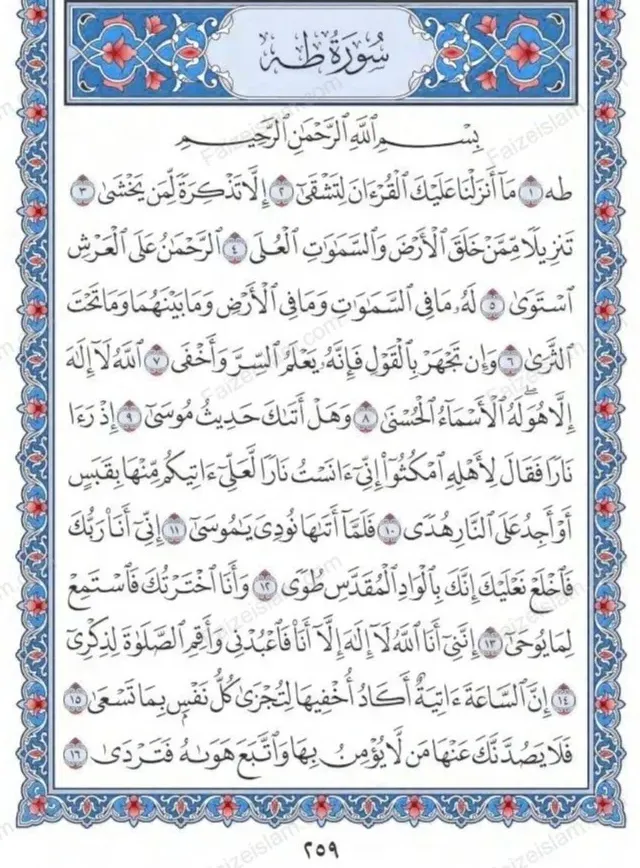 سُورَةُ طه
بِسْمِ اللَّهِ الرَّحْمَٰنِ الرَّحِيمِ
طه ١ مَا أَنزَلْنَا عَلَيْكَ الْقُرْءَانَ لِتَشْقَىٰ ٢ إِلَّا تَذْكِرَةً لِّمَن يَخْشَىٰ ٣
تَنزِيلًا مِّمَّنْ خَلَقَ الْأَرْضَ وَالسَّمَٰوَٰتِ الْعُلَى ٤ الرَّحْمَٰنُ عَلَى الْعَرْشِ
اسْتَوَىٰ ٥ لَهُۥ مَا فِي السَّمَٰوَٰتِ وَمَا فِي الْأَرْضِ وَمَا بَيْنَهُمَا وَمَا تَحْتَ
الثَّرَىٰ ٦ وَإِن تَجْهَرْ بِالْقَوْلِ فَإِنَّهُۥ يَعْلَمُ السِّرَّ وَأَخْفَى ٧ اللَّهُ لَا إِلَٰهَ
إِلَّا هُوَ لَهُ الْأَسْمَاءُ الْحُسْنَىٰ ٨ وَهَلْ أَتَىٰكَ حَدِيثُ مُوسَىٰ ٩ إِذْ رَءَا
نَارًا فَقَالَ لِأَهْلِهِ امْكُثُوا إِنِّي ءَانَسْتُ نَارًا لَّعَلِّي ءَاتِيكُم مِّنْهَا بِقَبَسٍ
أَوْ أَجِدُ عَلَى النَّارِ هُدًى ١٠ فَلَمَّا أَتَىٰهَا نُودِيَ يَٰمُوسَىٰ ١١ إِنِّي أَنَا رَبُّكَ
فَاخْلَعْ نَعْلَيْكَ إِنَّكَ بِالْوَادِ الْمُقَدَّسِ طُوًى ١٢ وَأَنَا اخْتَرْتُكَ فَاسْتَمِعْ
لِمَا يُوحَىٰ ١٣ إِنَّنِي أَنَا اللَّهُ لَا إِلَٰهَ إِلَّا أَنَا فَاعْبُدْنِي وَأَقِمِ الصَّلَوٰةَ لِذِكْرِي
١٤ إِنَّ السَّاعَةَ ءَاتِيَةٌ أَكَادُ أُخْفِيهَا لِتُجْزَىٰ كُلُّ نَفْسٍ بِمَا تَسْعَىٰ ١٥
فَلَا يَصُدَّنَّكَ عَنْهَا مَن لَّا يُؤْمِنُ بِهَا وَاتَّبَعَ هَوَىٰهُ فَتَرْدَىٰ ١٦
٢٥٩
Faizeislam.com